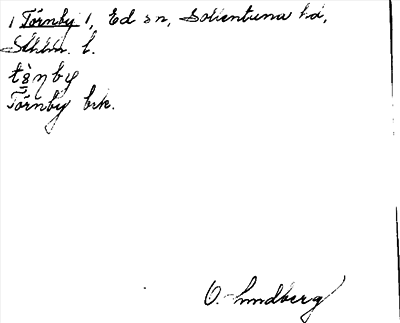 ( Törnby ), Ed sn, Sollentuna hd,
Sthlm. l.
tə̀ηby
Törnby brk.
O. Lundberg